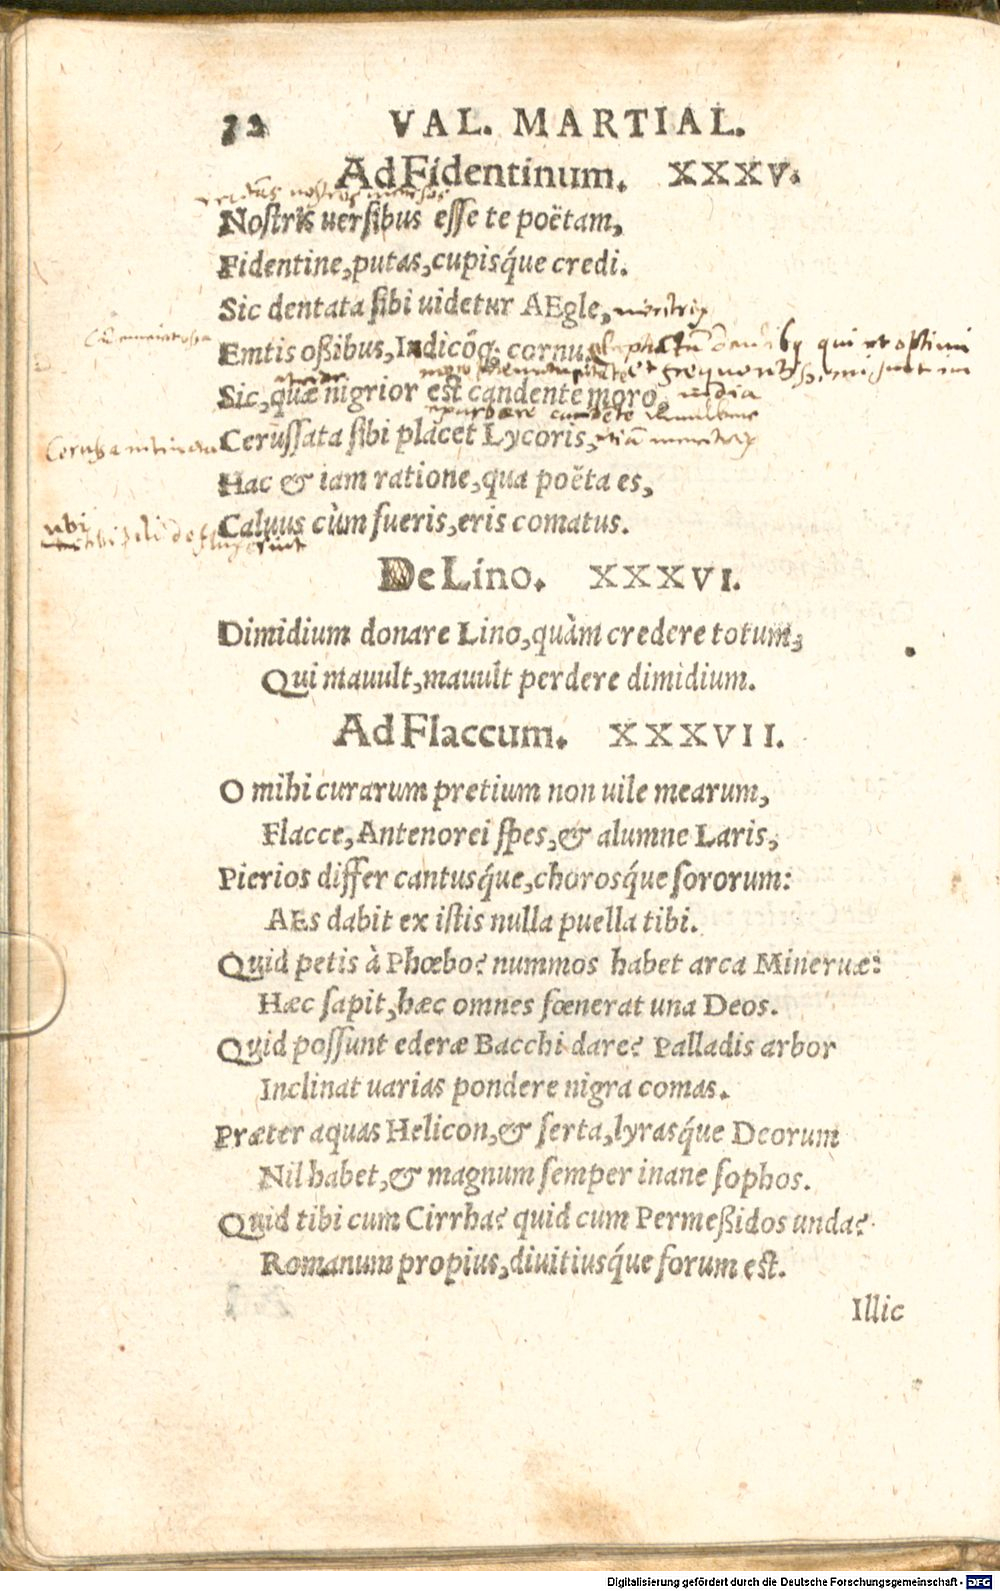 32 VAL. MARTIAL.
Ad Fidentinum. XXXV.
nostros
Nostris uersibus esse te poëtam,
Fidentine, putas, cupisq́ue credi.
Sic dentata sibi uidetur AEgle, meretrix
Emtis oßibus, Indicōq; cornu.
qui et optimi
Sic, quæ nigrior est candente moro, india
Cerussata sibi placet Lycoris, etiā meretrix
Cerussa
Hac & iam ratione, qua poëta es,
Caluus cùm fueris, eris comatus.
ubi
De Lino. XXXVI.
Dimidium donare Lino, quàm credere totum,
Qui mauult, mauult perdere dimidium.
Ad Flaccum. XXXVII.
O mihi curarum pretium non uile mearum,
Flacce, Antenorei spes, & alumne Laris,
Pierios differ cantusq́ue, chorosq́ue sororum:
AEs dabit ex istis nulla puella tibi.
Quid petis à Phœbo? nummos habet arca Mineruæ:
Hæc sapit, hæc omnes fœnerat una Deos.
Quid possunt ederæ Bacchi dare? Palladis arbor
Inclinat uarias pondere nigra comas.
Præter aquas Helicon, & serta, lyrasq́ue Deorum
Nil habet, & magnum semper inane sophos.
Quid tibi cum Cirrha? quid cum Permeßidos unda?
Romanum propius, diuitiusq́ue forum est.
Illic
Digitalisierung gefördert durch die Deutsche Forschungsgemeinschaft - DFG